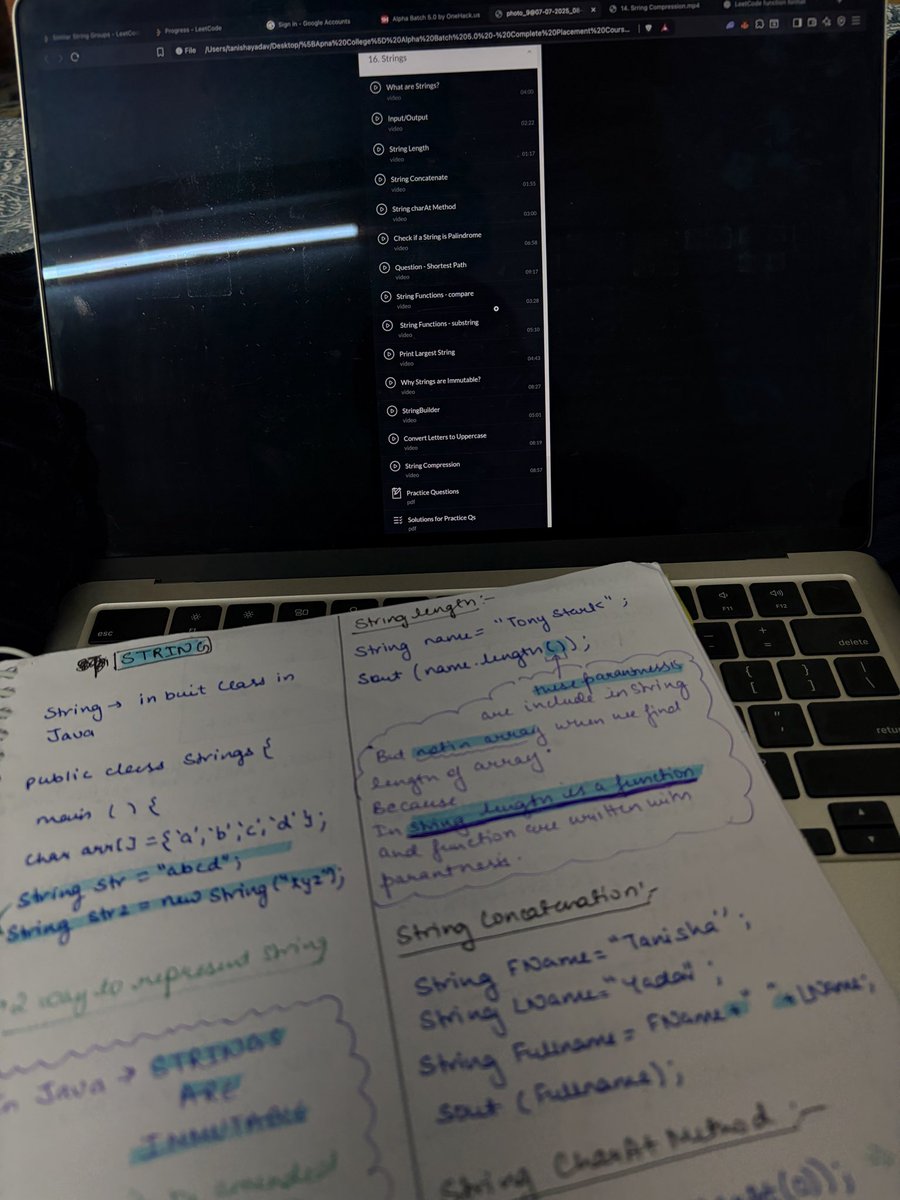 Similar String Groups - LeetCo
Progress - LeetCode
Sign in - Google Accounts
Alpha Batch 5.0 by OneHack.us
photo_9@07-07-2025_08-
14. String Compression.mp4
LeetCode function format
File
/Users/tanishayadav/Desktop/%5BApna%20College%5D%20Alpha%20Batch%205.0%20-%20Complete%20Placement%20Cours...
16. Strings
What are Strings?
video
04:00
Input/Output
video
02:22
String Length
video
01:17
String Concatenate
video
01:55
String charAt Method
video
03:00
Check if a String is Palindrome
video
06:58
Question - Shortest Path
video
09:17
String Functions - compare
video
03:28
String Functions - substring
video
05:10
Print Largest String
video
04:43
Why Strings are Immutable?
video
08:27
StringBuilder
video
05:01
Convert Letters to Uppercase
video
08:19
String Compression
video
08:57
Practice Questions
pdf
Solutions for Practice Qs
pdf
esc
F11
F12
delete
retu
STRING
String → in buit class in
Java
public class Strings {
main () {
char arr[] = {'a','b','c','d'};
String str = "abcd";
String str2 = new String("xyz");
2 way to represent string
In Java → STRINGS
ARE
IMMUTABLE
String length:-
String name = "Tony Stark";
Sout (name.length());
these parantnesis
are include in string
"But not in array when we find
length of array"
Because
In string length is a function
and function are written with
parantnesis.
String Concatenation:-
String FName = "Tanisha";
String LName = "Yadav";
String Fullname = FName + " " + LName;
Sout (Fullname);
String CharAt Method :-